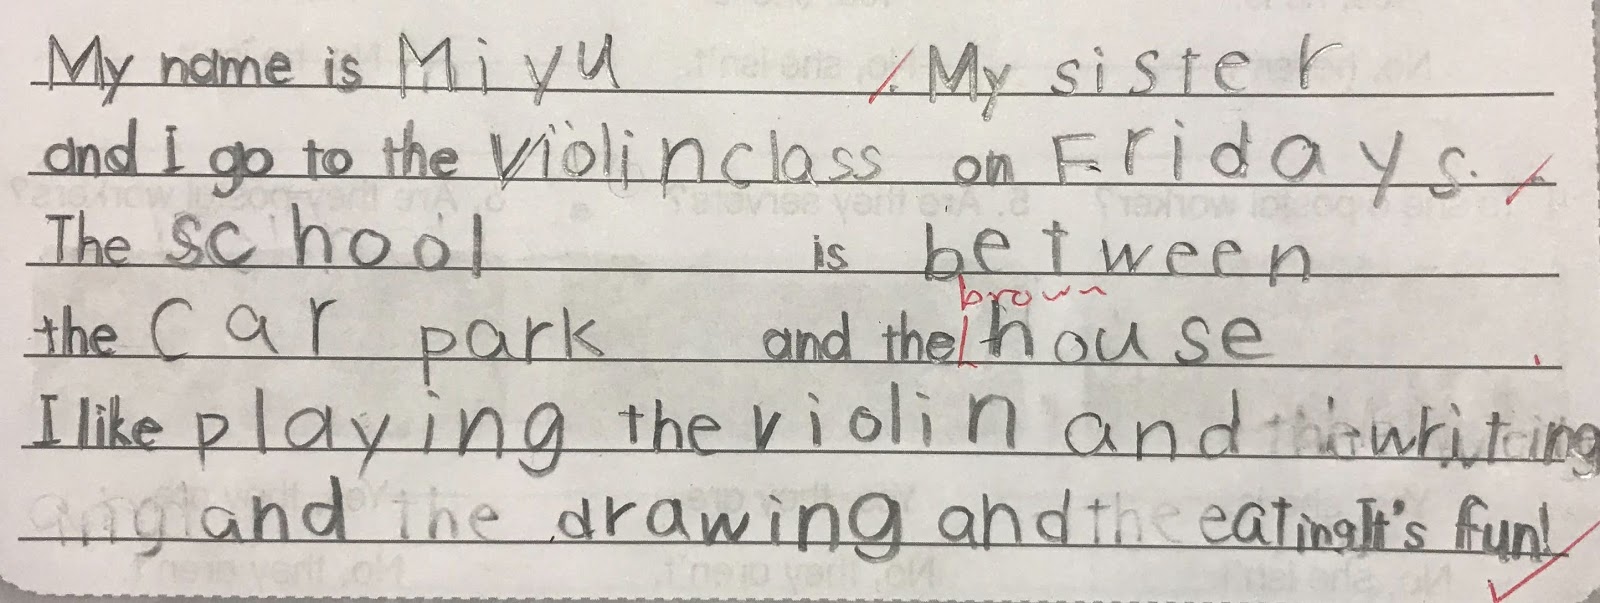 My name is Miyu . My sister
and I go to the violin class on Fridays.
The school is between
brown
the car park and the house .
I like playing the violin and writing
and the drawing and the eating It's fun!